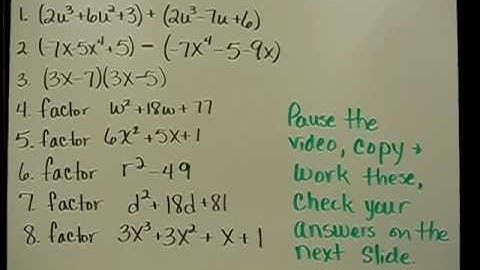 1. (2u³+6u²+3) + (2u³-7u+6)
2. (-7x-5x⁴+5) - (-7x⁴-5-9x)
3. (3x-7)(3x-5)
4. factor w²+18w+77
5. factor 6x²+5x+1
6. factor r²-49
7. factor d²+18d+81
8. factor 3x³+3x²+x+1
Pause the
video, copy +
work these,
check your
answers on the
next slide.